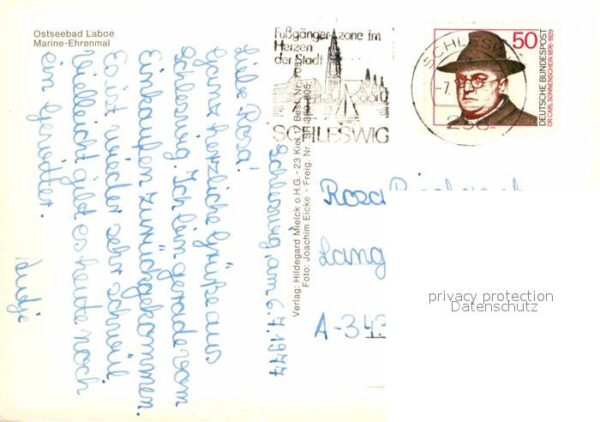 Ostseebad Laboe
Marine-Ehrenmal
Fußgängerzone im
Herzen
der Stadt
SCHLESWIG
SCHLESWIG
-7.
50
DEUTSCHE BUNDESPOST
DR. CARL SONNENSCHEIN 1876-1929
Schleswig, am 6.7.1977
Liebe Rosa!
Ganz herzliche Grüße aus
Schleswig. Ich bin gerade vom
Einkaufen zurückgekommen.
Es ist wieder sehr schwül
Vielleicht gibt es heute noch
ein Gewitter.
Verlag: Hildegard Mielck o.H.G. - 23 Kiel
Foto: Joachim Eicke - Freig. Nr. SH
Rosa
Lang
A-343
privacy protection
Datenschutz